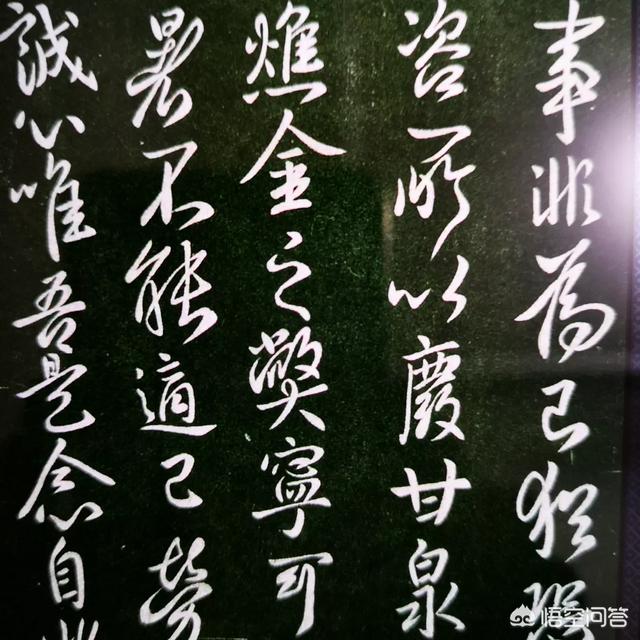 事非為己猶
咨所以慶甘泉
燋金之獘寧可
暑不能適己勞
誠心唯吾是念自
悟空问答